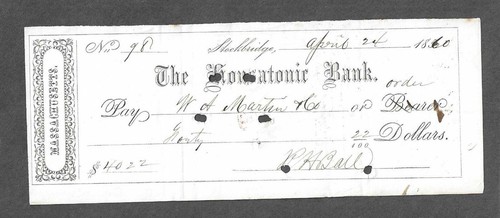 MASSACHUSETTS.
No. 98 Stockbridge, April 24 1860
The Housatonic Bank.
order
Pay W A Martin & Co or Bearer
Forty 22/100 Dollars.
$40 22
H Ball